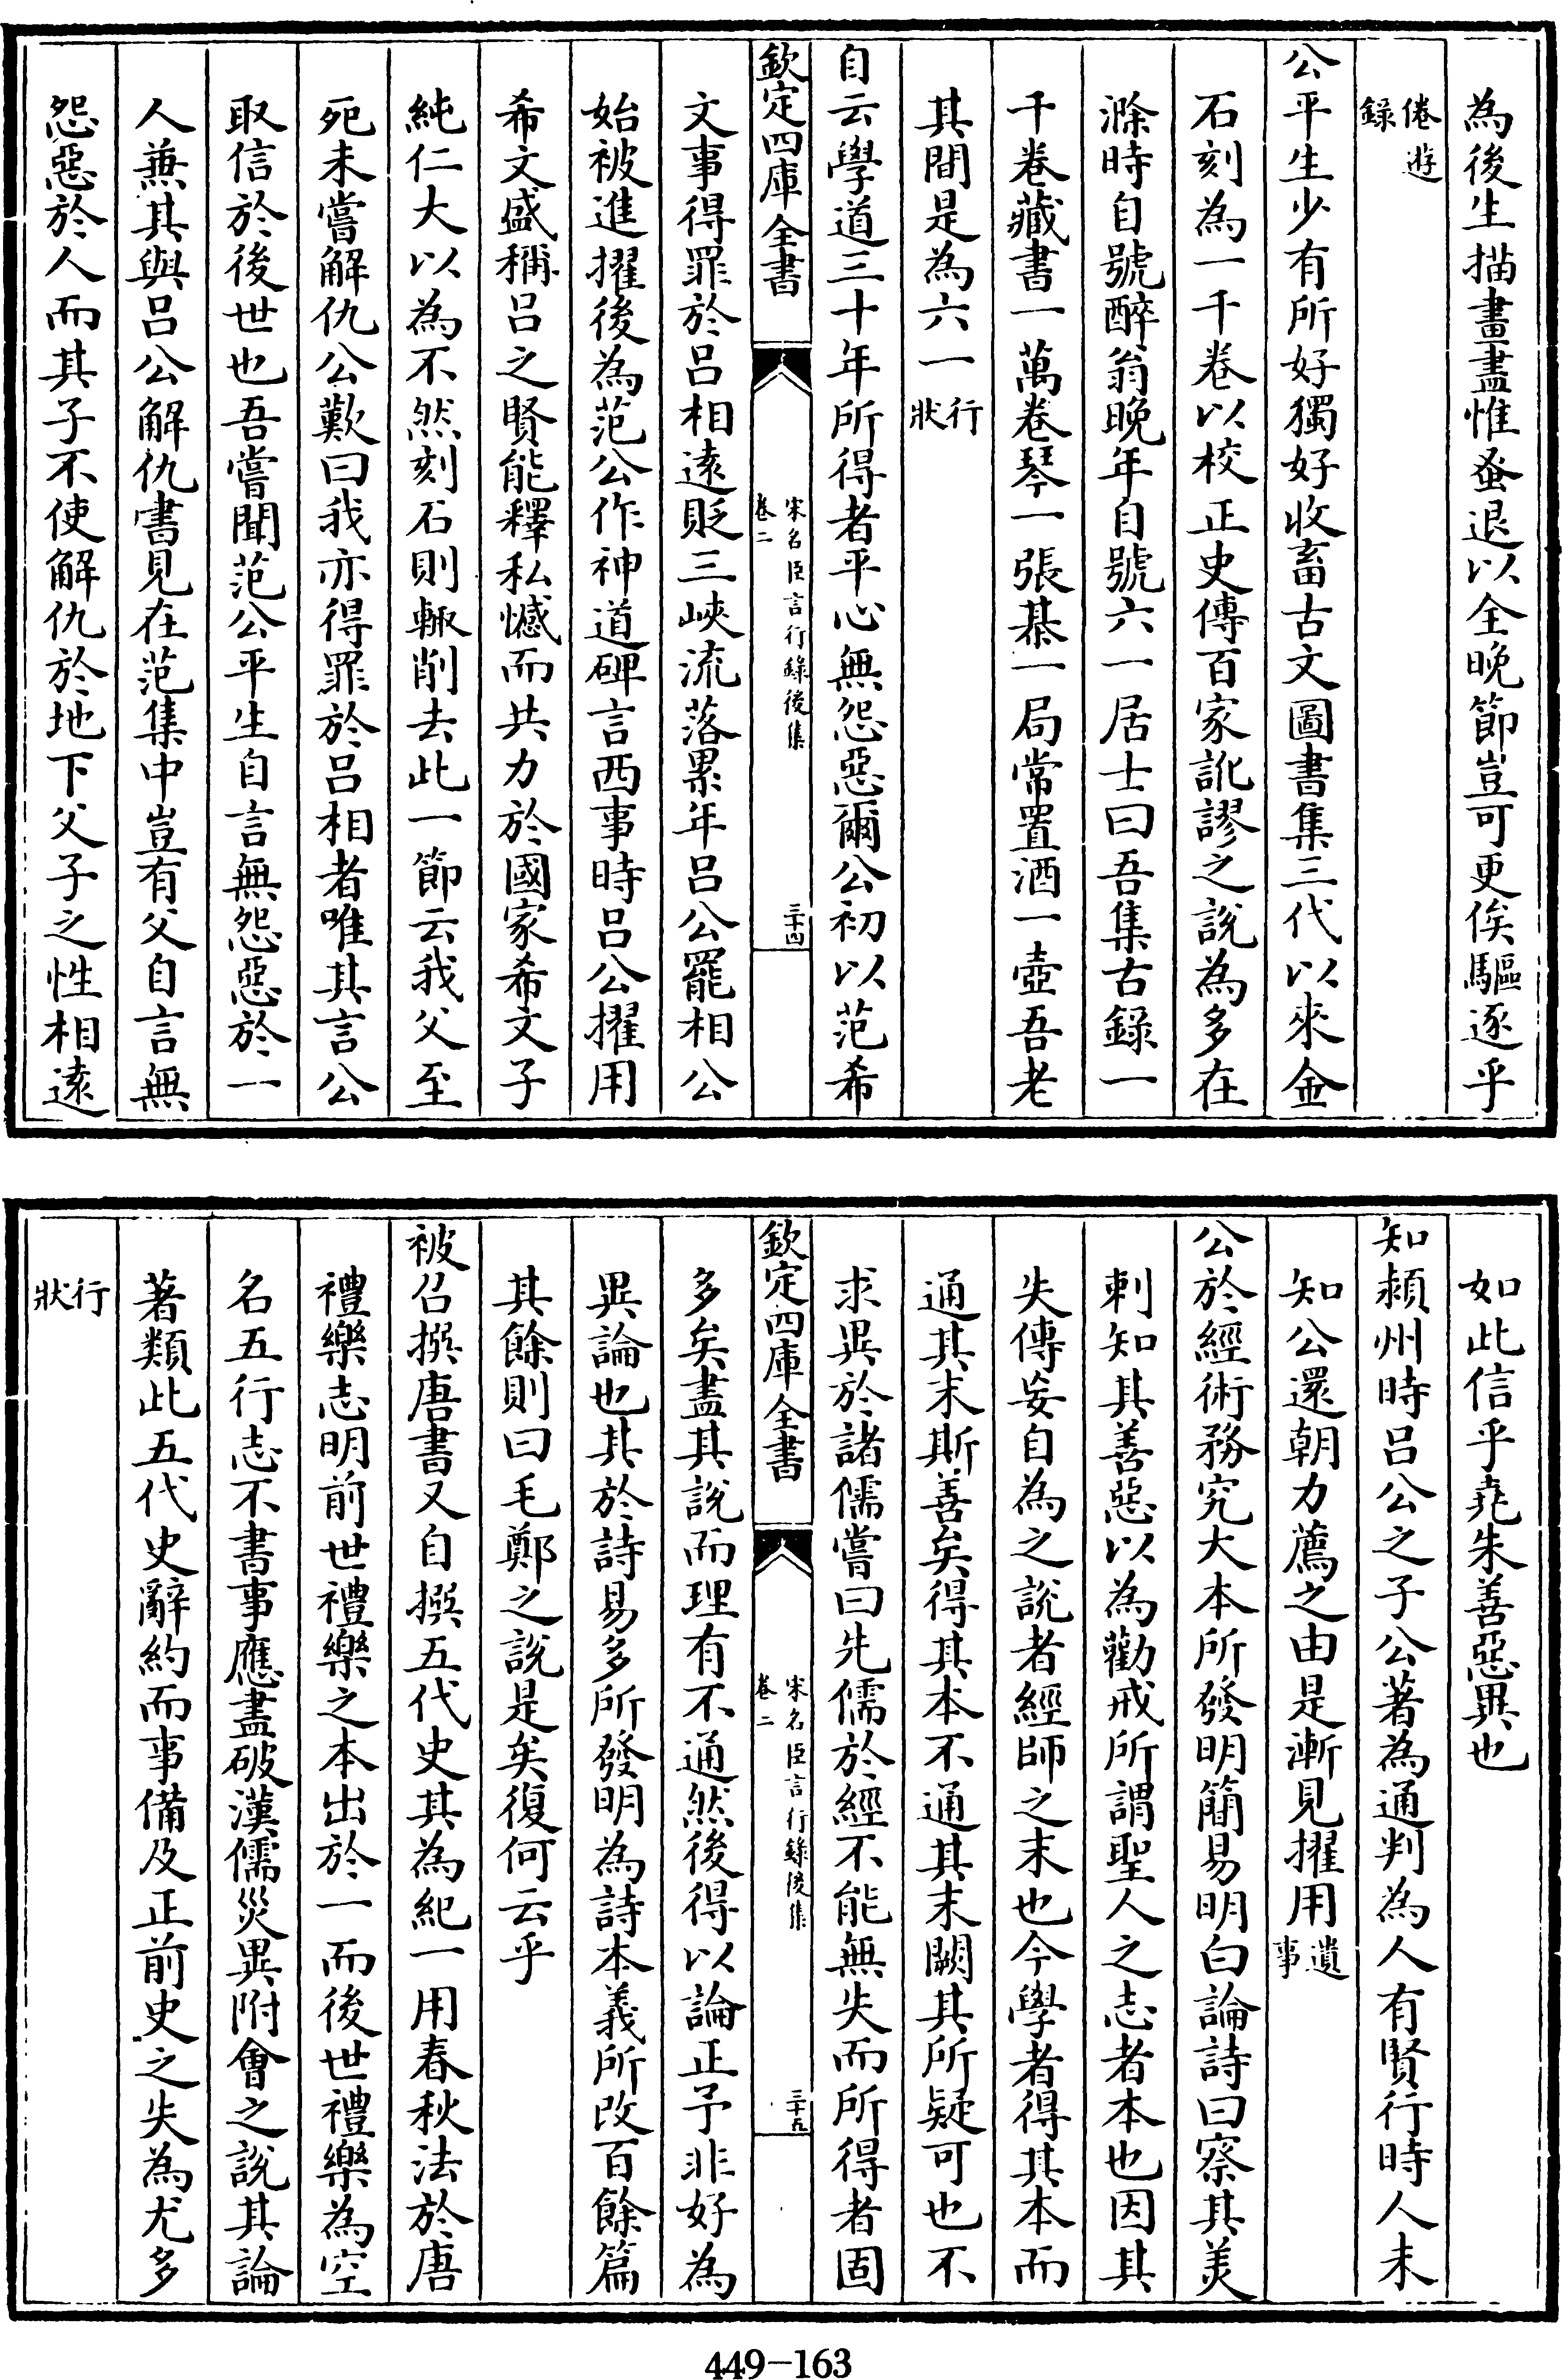 為後生描畫盡惟蚤退以全晚節豈可更俟驅逐乎
倦遊
錄
公平生少有所好獨好收畜古文圖書集三代以來金
石刻為一千卷以校正史傳百家訛謬之說為多在
滁時自號醉翁晚年自號六一居士曰吾集古錄一
千卷藏書一萬卷琴一張棊一局常置酒一壺吾老
其間是為六一行
狀
自云學道三十年所得者平心無怨惡爾公初以范希
欽定四庫全書
宋名臣言行錄後集
卷二
三十四
文事得罪於呂相遠貶三峽流落累年呂公罷相公
始被進擢後為范公作神道碑言西事時呂公擢用
希文盛稱呂之賢能釋私憾而共力於國家希文子
純仁大以為不然刻石則輒削去此一節云我父至
死未嘗解仇公歎曰我亦得罪於呂相者唯其言公
取信於後世也吾嘗聞范公平生自言無怨惡於一
人兼其與呂公解仇書見在范集中豈有父自言無
怨惡於人而其子不使解仇於地下父子之性相遠
如此信乎堯朱善惡異也
知潁州時呂公之子公著為通判為人有賢行時人未
知公還朝力薦之由是漸見擢用遺
事
公於經術務究大本所發明簡易明白論詩曰察其美
刺知其善惡以為勸戒所謂聖人之志者本也因其
失傳妄自為之說者經師之末也今學者得其本而
通其末斯善矣得其本不通其末闕其所疑可也不
求異於諸儒嘗曰先儒於經不能無失而所得者固
欽定四庫全書
宋名臣言行錄後集
卷二
三十五
多矣盡其說而理有不通然後得以論正予非好為
異論也其於詩易多所發明為詩本義所改百餘篇
其餘則曰毛鄭之說是矣復何云乎
被召撰唐書又自撰五代史其為紀一用春秋法於唐
禮樂志明前世禮樂之本出於一而後世禮樂為空
名五行志不書事應盡破漢儒災異附會之說其論
著類此五代史辭約而事備及正前史之失為尤多
行
狀
449-163